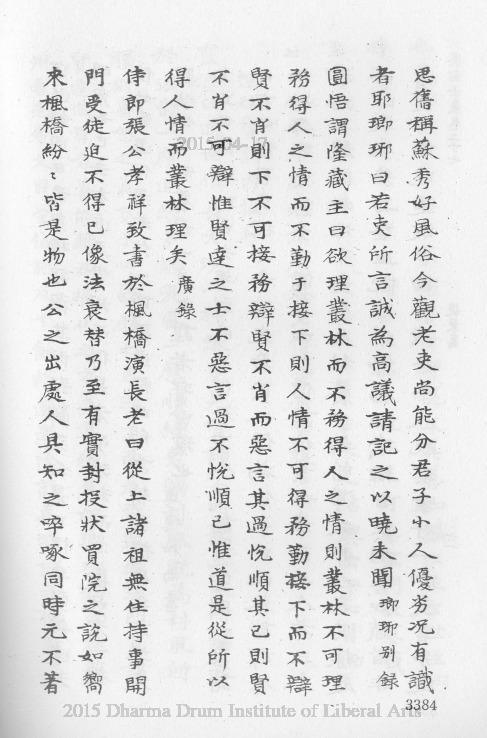 思舊稱蘇秀好風俗今觀老吏尚能分君子小人優劣况有識
者耶瑯琊曰若吏所言誠為高議請記之以曉未聞瑯瑯別錄
圓悟謂隆藏主曰欲理叢林而不務得人之情則叢林不可理
務得人之情而不勤于接下則人情不可得務勤接下而不辯
賢不肖則下不可接務辯賢不肖而惡言其過悅順其己則賢
不肖不可辯惟賢達之士不惡言過不悅順己惟道是從所以
得人情而叢林理矣廣錄
侍郎張公孝祥致書於楓橋演長老曰從上諸祖無住持事開
門受徒迫不得已像法衰替乃至有實封投狀買院之說如嚮
來楓橋紛〻皆是物也公之出處人具知之啐啄同時元不著
3384
2015-04-17
2015 Dharma Drum Institute of Liberal Arts